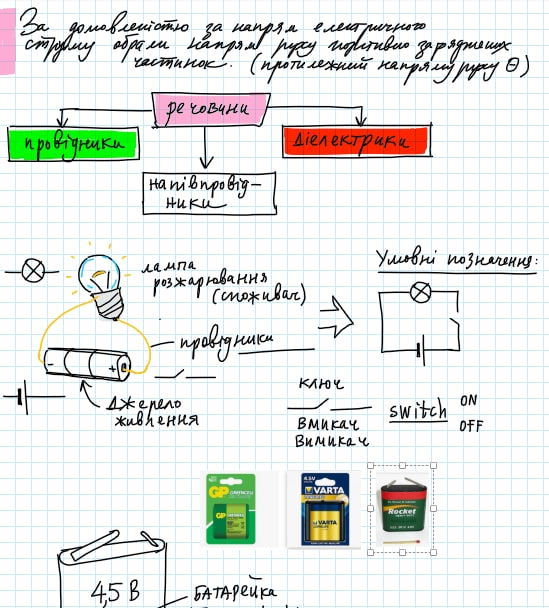 За домовленістю за напрям електричного
струму обрали напрям руху позитивно заряджених
частинок. (протилежний напряму руху ⊖)
речовини
провідники
діелектрики
напівпровід-
ники
лампа
розжарювання
(споживач)
Умовні позначення:
провідники
- +
Джерело
живлення
ключ
Вмикач
Вимикач
switch
ON
OFF
GP GREENCELL
4.5V
VARTA
Rocket
4,5 В
БАТАРЕЙКА